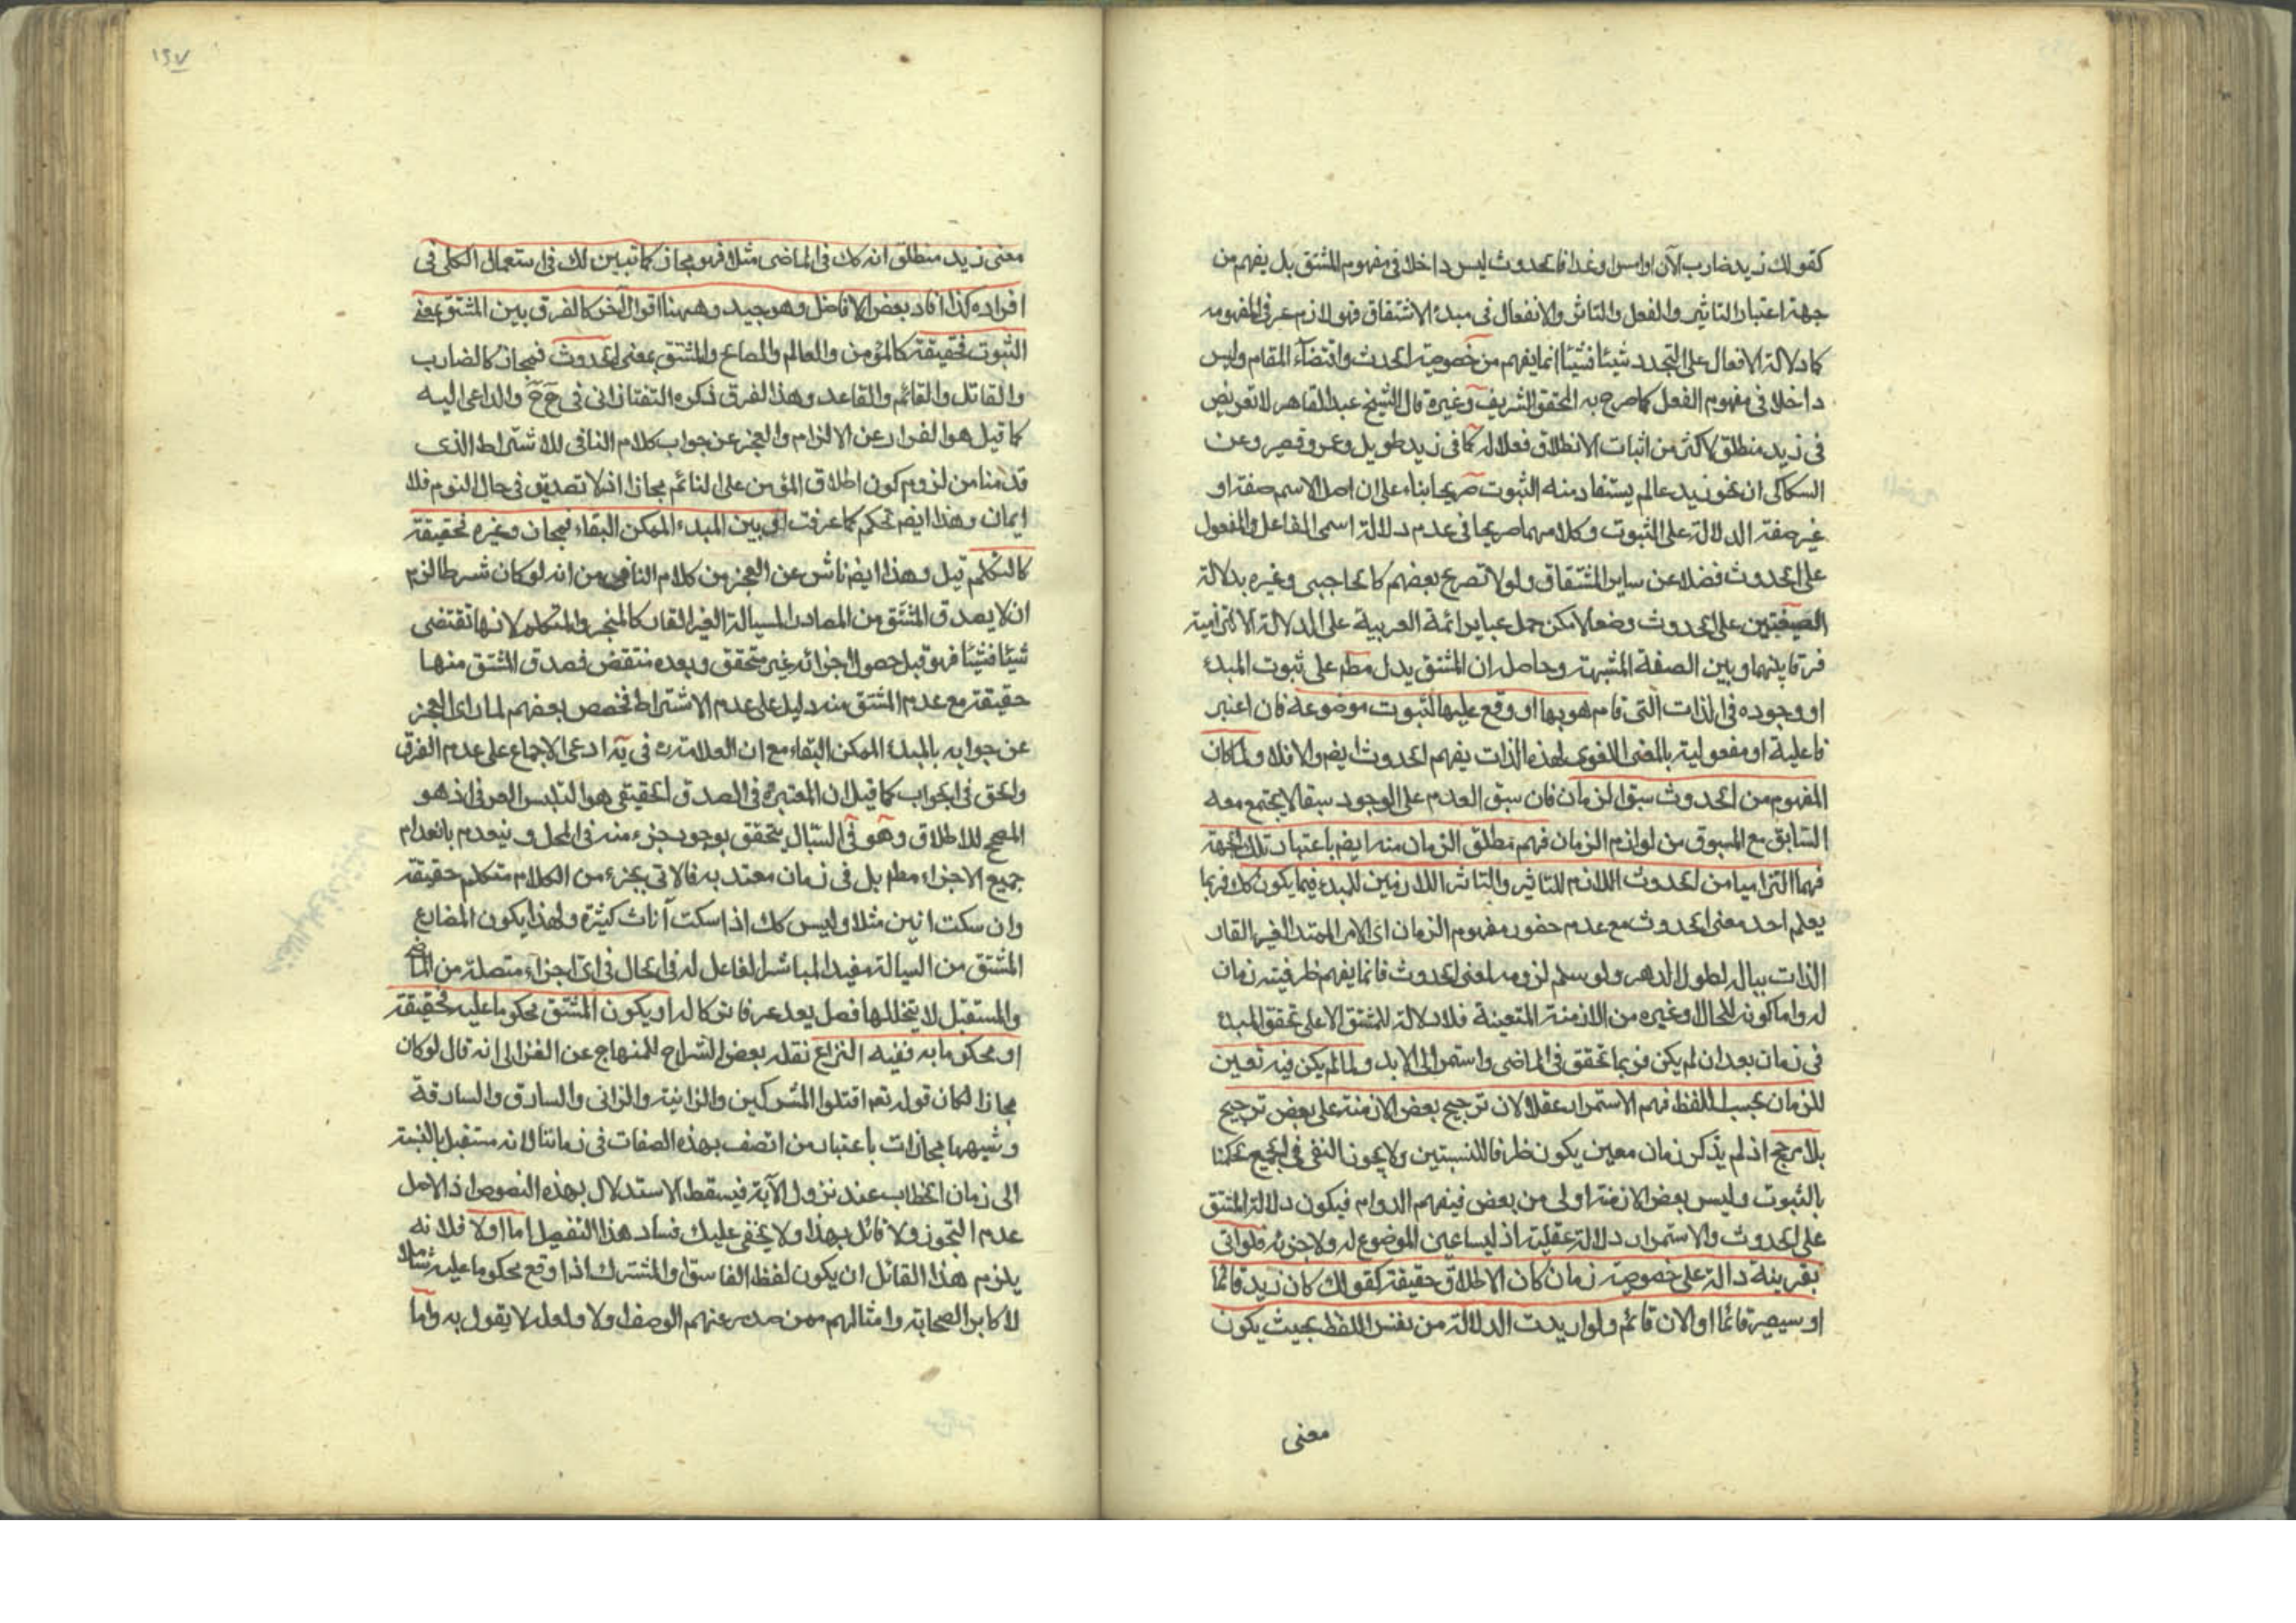 كقولك زيد ضارب الآن او امس او غدا فالحدوث ليس داخلا فى مفهوم المشتق بل يفهم من
جهة اعتبار التاثير والفعل والتاثر والانفعال فى مبدء الاشتقاق فهو لازم عرفى لمفهومه
كما دلالة الافعال على التجدد شيئا فشيئا انما يفهم من خصوصية الحدث واقتضاء المقام وليس
داخلا فى مفهوم الفعل كما صرح به المحقق الشريف وغيره قال الشيخ عبد القاهر لا تعريض
فى زيد منطلق لاكثر من اثبات الانطلاق فعلا له كما فى زيد طويل وعمرو قصير وعن
السكاكى ان نحو زيد عالم يستفاد منه الثبوت صريحا بناء على ان اصل الاسم صفة او
غير صفة الدلالة على الثبوت وكلامهما صريحا فى عدم دلالة اسمى الفاعل والمفعول
على الحدوث فضلا عن ساير المشتقات ولولا تصريح بعضهم كالحاجبى وغيره بدلالة
الصيغتين على الحدوث وضعا لامكن حمل عباير ائمة العربية على الدلالة الالتزامية
فرقا بينهما وبين الصفة المشبهة وحاصله ان المشتق يدل مطم على ثبوت المبدء
او وجوده فى الذات التى قام هو بها او وقع عليها لثبوت موضوعه فان اعتبر
فاعلية او مفعولية بالمعنى اللغوى لهذه الذات يفهم الحدوث ايضم والا فلا ولما كان
المفهوم من الحدوث سبق الزمان فان سبق العدم على الوجود سبقا لا يجتمع معه
السابق مع المسبوق من لوازم الزمان فهم مطلق الزمان منه ايضم باعتبار تلك الجهة
فهما التزاميا من الحدوث اللازم للتاثير والتاثر اللازمين للمبدء فيما يكون كك فربما
يعلم احد معنى الحدوث مع عدم حضور مفهوم الزمان اى الامر الممتد الغير القار
الذات بباله لطول الدهر ولو سلم لزومه لمعنى الحدوث فانما يفهم ظرفيته زمان
له واما كونه للحال او غيره من الازمنة المتعينة فلا دلالة للمشتق الا على تحقق المبدء
فى زمان بعد ان لم يكن فربما تحقق فى الماضى واستمر الى الابد ولما لم يكن فيه تعيين
للزمان بحسب اللفظ فهم الاستمرار عقلا لان ترجيح بعض الازمنة على بعض ترجيح
بلا مرجح اذ لم يذكر زمان معين يكون ظرفا للنسبتين ولا يجوز النفى فى الجميع لحكمنا
بالثبوت وليس بعض الازمنة اولى من بعض فيفهم الدوام فيكون دلالة المشتق
على الحدوث والاستمرار دلالة عقلية اذ ليسا عين الموضوع له ولا جزئه فلو اتى
بقرينة دالة على خصوصية زمان كان الاطلاق حقيقة كقولك كان زيد قائما
او سيصير قائما او الان قائم ولو اريدت الدلالة من نفس اللفظ بحيث يكون
معنى
١٩٧
معنى زيد منطلق انه كك فى الماضى مثلا فهو مجاز كما تبين لك فى استعمال الكلى فى
افراده كذا افاد بعض الافاضل وهو جيد وههنا اقوال آخر كالفرق بين المشتق بمعنى
الثبوت فحقيقة كالمؤمن والعالم والصايغ والمشتق بمعنى الحدوث فمجاز كالضارب
والقاتل والقائم والقاعد وهذا الفرق ذكره التفتازانى فى ح ح والداعى اليه
كما قيل هو الفرار عن الالزام والعجز عن جواب كلام النافى للاشتراط الذى
قدمنا من لزوم كون اطلاق المؤمن على النائم مجازا اذ لا تصديق فى حال النوم فلا
ايمان وهذا ايضم تحكم كما عرفت او بين المبدء الممكن البقاء فمجاز وغيره فحقيقة
كالمتكلم قيل وهذا ايضم ناش عن العجز من كلام النافى من انه لو كان شرطا لزم
ان لا يصدق المشتق من المصادر السيالة الغير القار كالمخبر والمتكلم لانها تقتضى
شيئا فشيئا فهو قبل حصول اجزائه غير متحقق وبعده منتقض فصدق المشتق منها
حقيقة مع عدم المشتق منه دليل على عدم الاشتراط فخصص بعضهم لما راى العجز
عن جوابه بالمبدء الممكن البقاء مع ان العلامة ره فى يه ادعى الاجماع على عدم الفرق
والحق فى الجواب كما قيل ان المعتبر فى الصدق الحقيقى هو التلبس العرفى اذ هو
المصحح للاطلاق وهو فى السيال يتحقق بوجود جزء منه فى المحل وينعدم بانعدام
جميع الاجزاء مطم بل فى زمان معتد به فالآتى بجزء من الكلام متكلم حقيقة
وان سكت انين مثلا وليس كك اذا سكت آنات كثيرة ولهذا يكون المضارع
المشتق من السيالة مفيد المباشر الفاعل له فى الحال فى اى اجزاء متصلة من الماضى
والمستقبل لا يتخللها فصل يعد عرفا تركا له او يكون المشتق محكوما عليه فحقيقة
او محكوما به ففيه النزاع نقله بعض الشراح للمنهاج عن الغزالى انه قال لو كان
مجازا لكان قوله تعم اقتلوا المشركين والزانية والزانى والسارق والسارقة
وشبهها مجازات باعتبار من اتصف بهذه الصفات فى زماننا لانه مستقبل بالنسبة
الى زمان الخطاب عند نزول الآية فيسقط الاستدلال بهذه النصوص اذ الاصل
عدم التجوز ولا قائل بهذا ولا يخفى عليك فساد هذا التفصيل اما اولا فلانه
يلزم هذا القائل ان يكون لفظ الفاسق والمشرك اذا وقع محكوما عليه شاملا
لاكابر الصحابة وامثالهم ممن صدر عنهم الوصف اولا ولعله لا يقول به واما